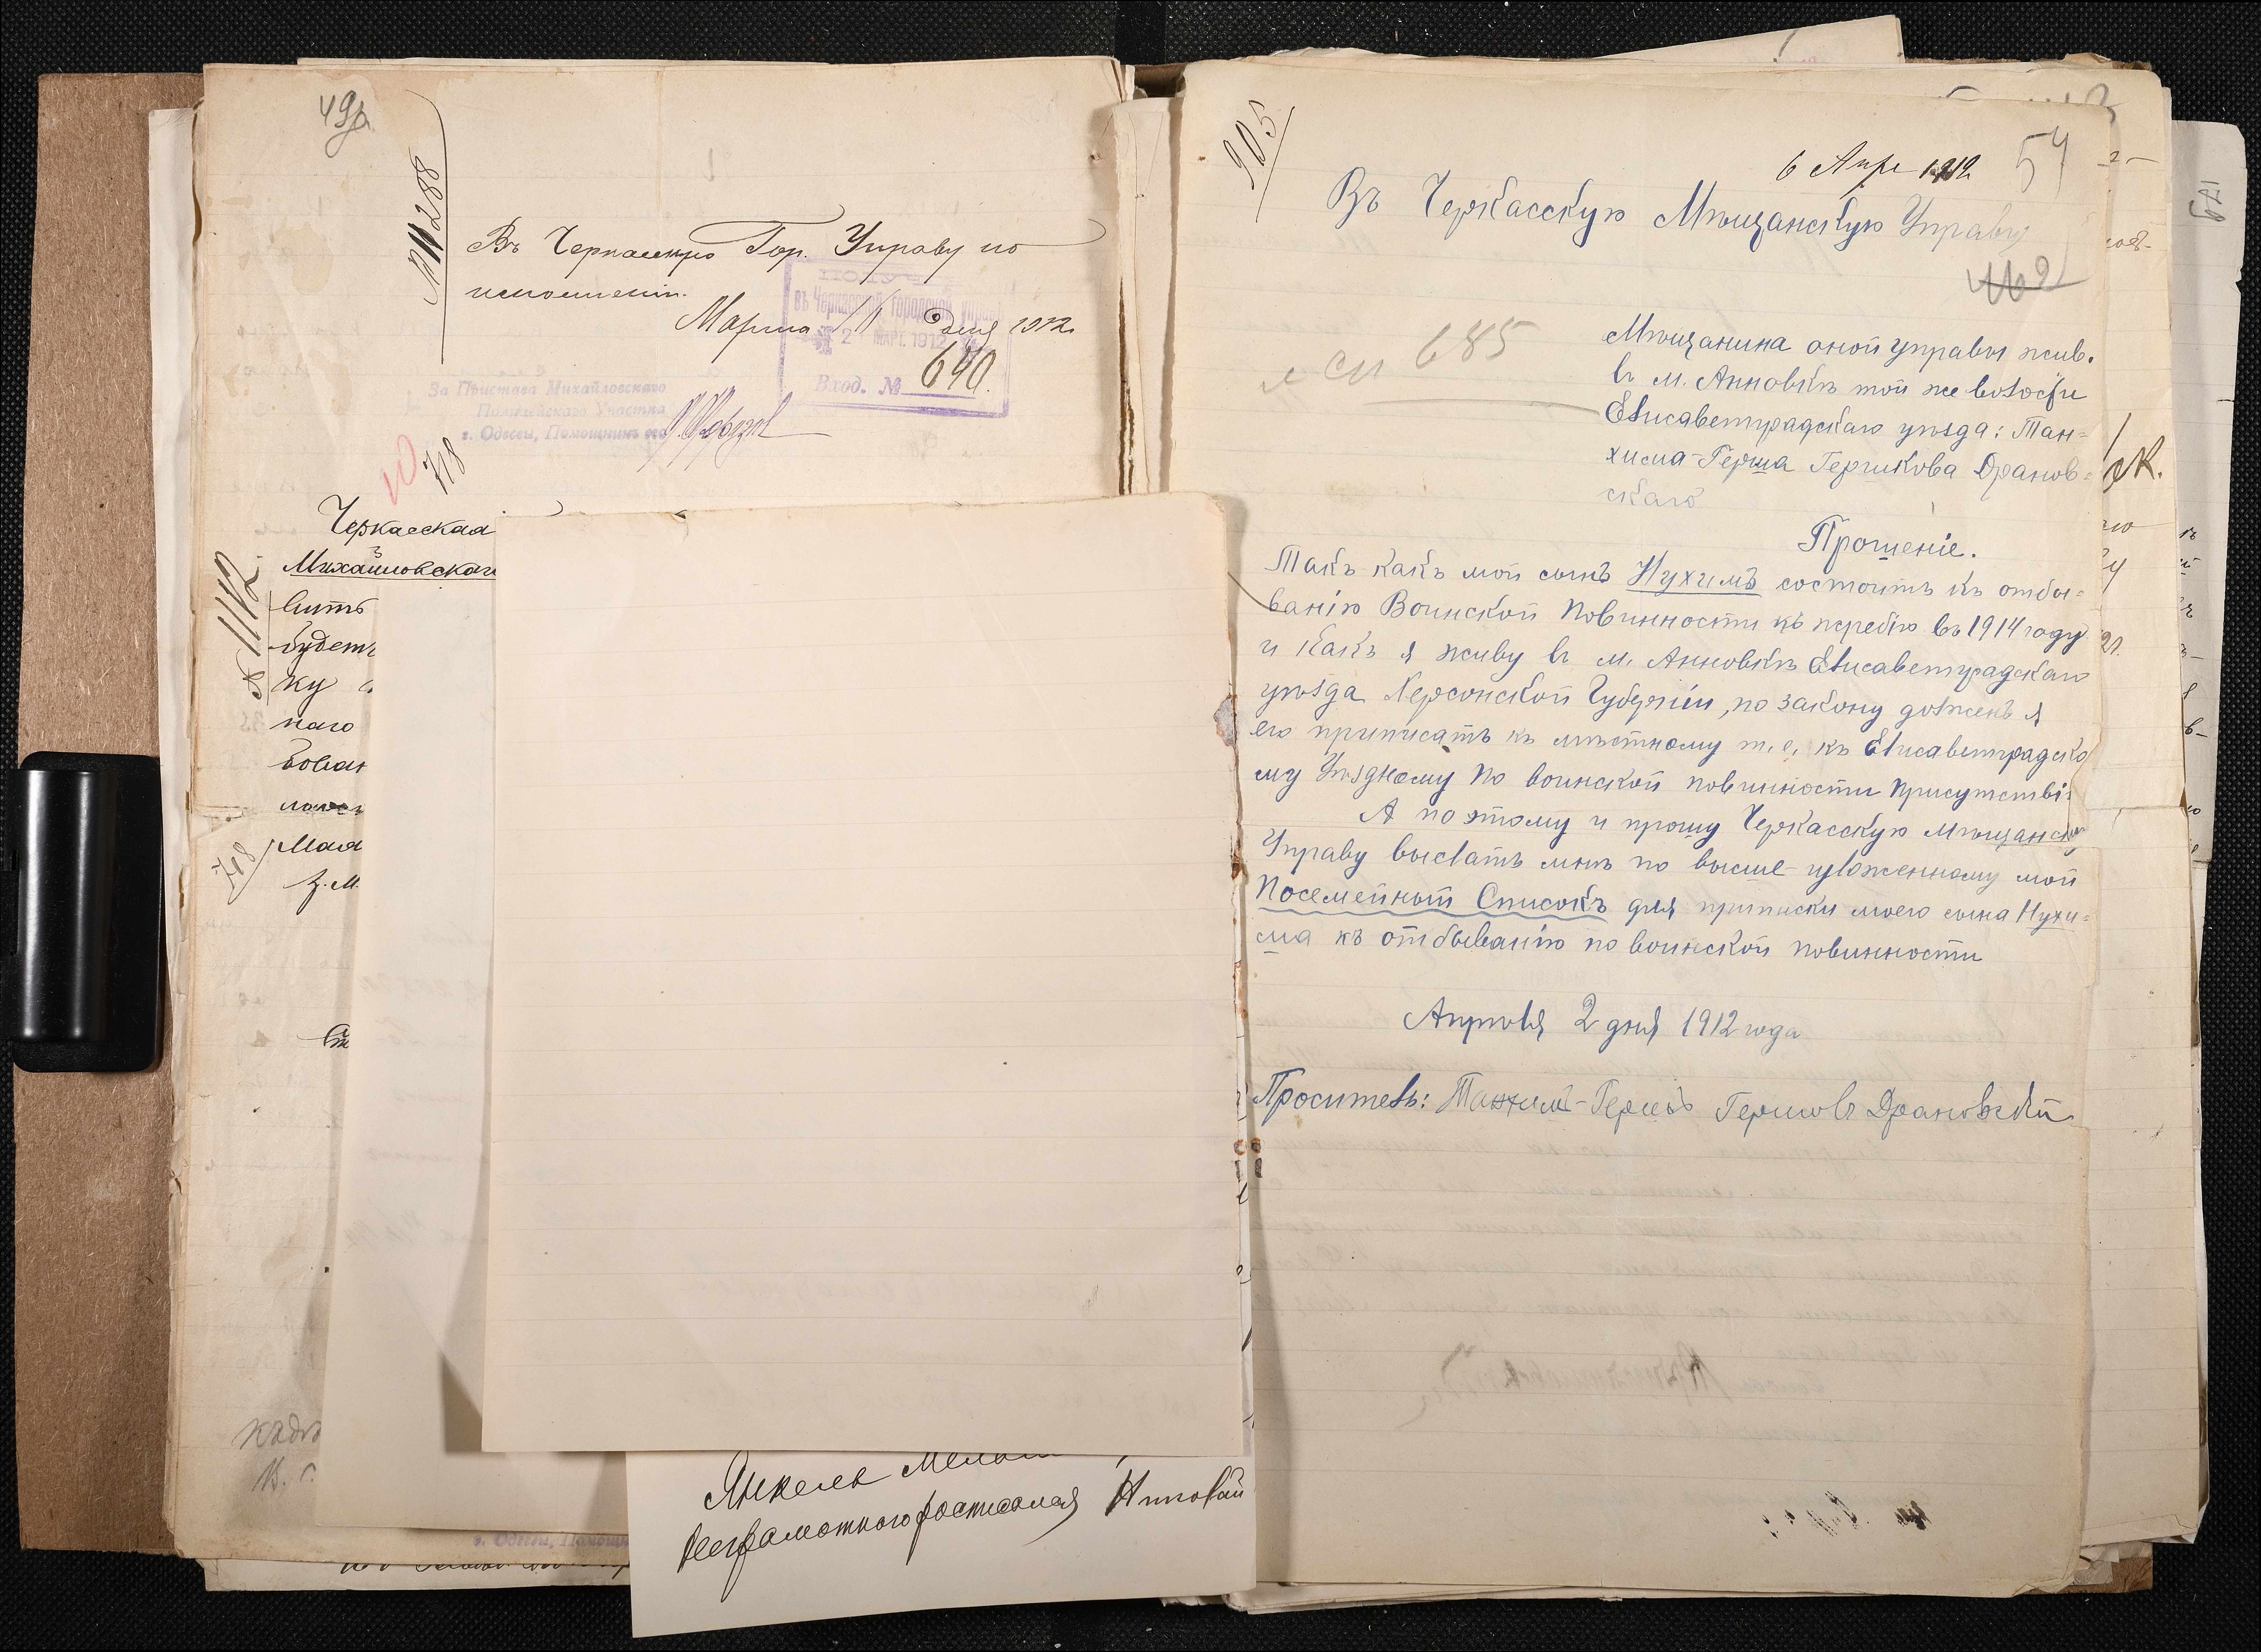 49
№ 11288
Въ Черкасскую Гор. Управу по
исполненіи.
Марта 11 дня 1912
въ Черкасской городской управѣ
2 МАРТ. 1912
Вход. № 640.
За Пристава Михайловскаго
Полицейскаго Участка
г. Одессы, Помощникъ его
718
Черкасская
Михайловскаго
вить
будетъ
ку
наго
Мая
718
№ 1112
г. Одессы, Помощн
Янкель
неграмотнаго росписался Николай
905
6 Апр 1912
54
Въ Черкасскую Мѣщанскую Управу
462
685
Мѣщанина оной управы жив.
въ м. Анновкѣ той же волости
Елисаветградскаго уѣзда: Тан=
хима-Герша Гершкова Драновъ=
скаго
Прошеніе.
Такъ какъ мой сынъ Нухимъ состоитъ къ отбы=
ванію Воинской Повинности къ жребію въ 1914 году
и какъ я живу въ м. Анновкѣ Елисаветградскаго
уѣзда Херсонской Губерніи, по закону долженъ я
его приписать къ мѣстному т.е. къ Елисаветградско
му Уѣздному по воинской повинности присутстві=
А поэтому и прошу Черкасскую мѣщанскую
Управу выслать мнѣ по выше-изложенному мой
Посемейный Списокъ для приписки моего сына Нухи=
ма къ отбыванію по воинской повинности
Апрѣля 2 дня 1912 года
Проситель: Танхимъ-Гершъ Гершовъ Драновскій